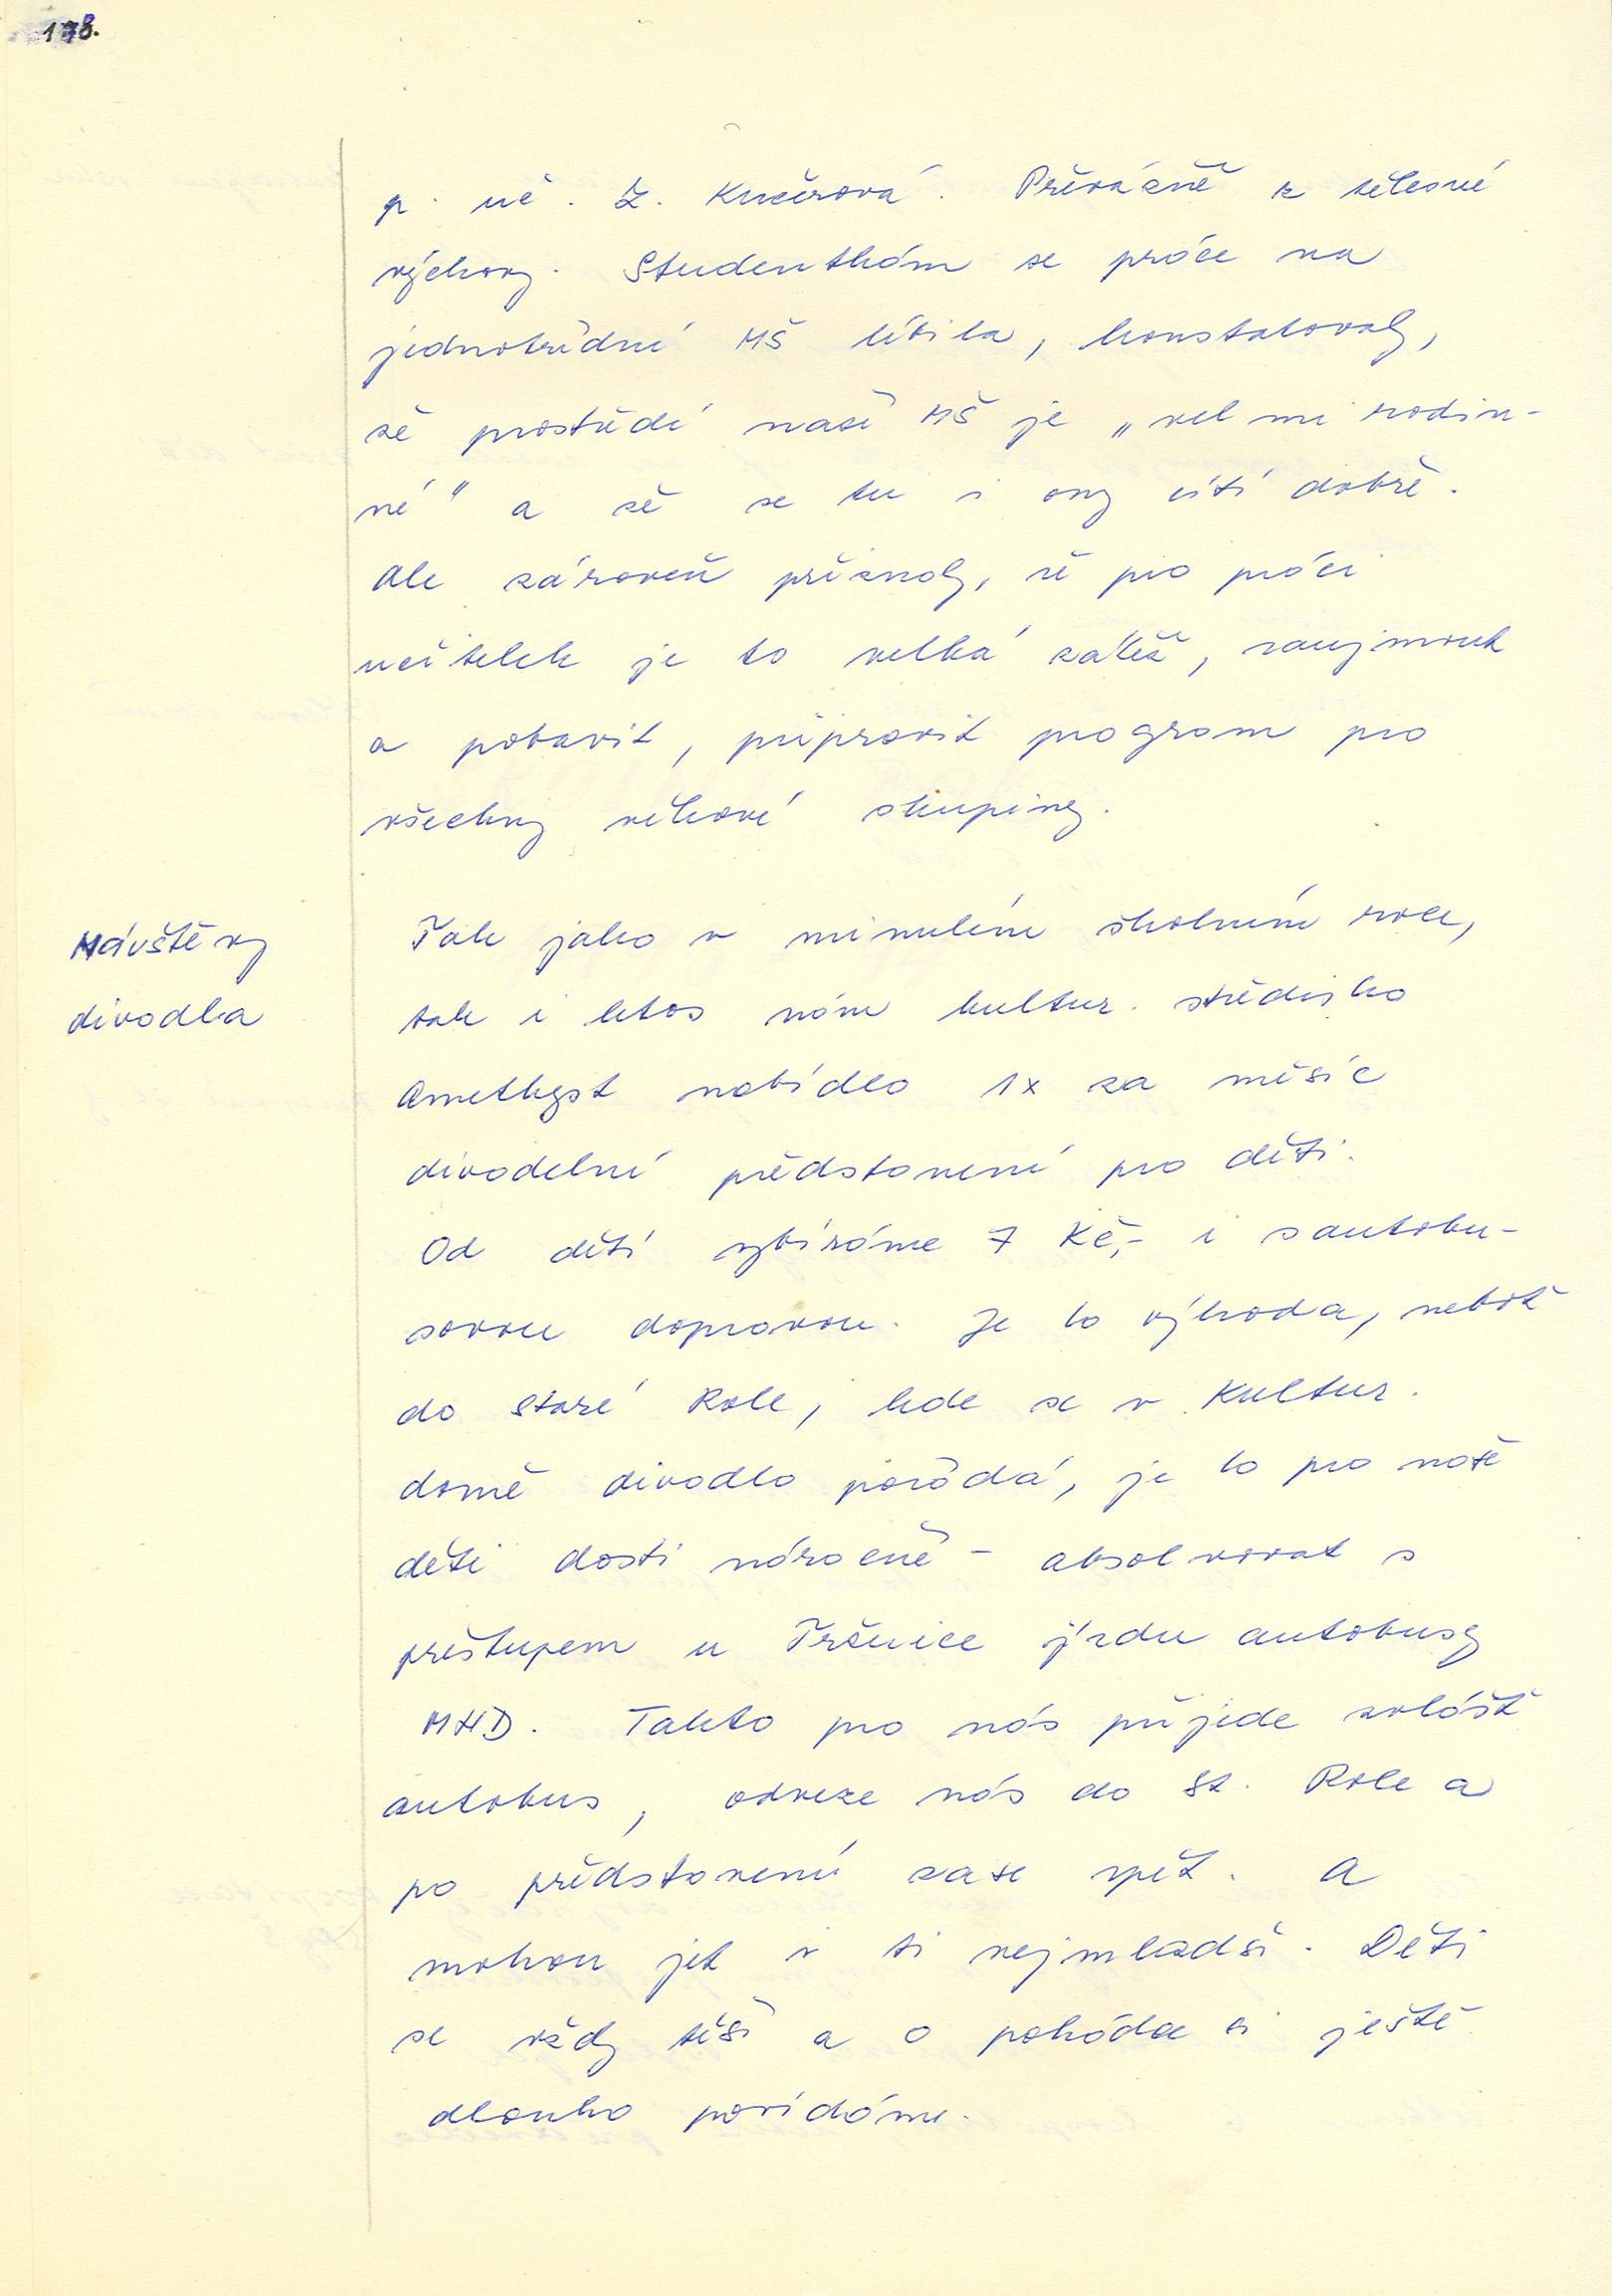 178.
p. uč. Z. Kučerová. Převážně z tělesné
výchovy. Studentkám se práce na
jednotřídní MŠ líbila, konstatovaly,
že prostředí naší MŠ je „velmi rodin-
né" a že se tu i ony cítí dobře.
Ale zároveň přiznaly, že pro práci
učitelek je to velká zátěž, zaujmout
a pobavit, připravit program pro
všechny věkové skupiny.
Návštěvy
divadla
Tak jako v minulém školním roce,
tak i letos nám kultur. středisko
Amethyst nabídlo 1x za měsíc
divadelní představení pro děti.
Od dětí vybíráme 7 Kč,- i s autobu-
sovou dopravou. Je to výhoda, neboť
do Staré Role, kde se v Kultur.
domě divadlo pořádá, je to pro naše
děti dosti náročné - absolvovat s
přestupem u Tržnice jízdu autobusy
MHD. Takto pro nás přijede zvlášť
autobus, odveze nás do St. Role a
po představení zase zpět. A
mohou jet i ti nejmladší. Děti
se vždy těší a o pohádce si ještě
dlouho povídáme.